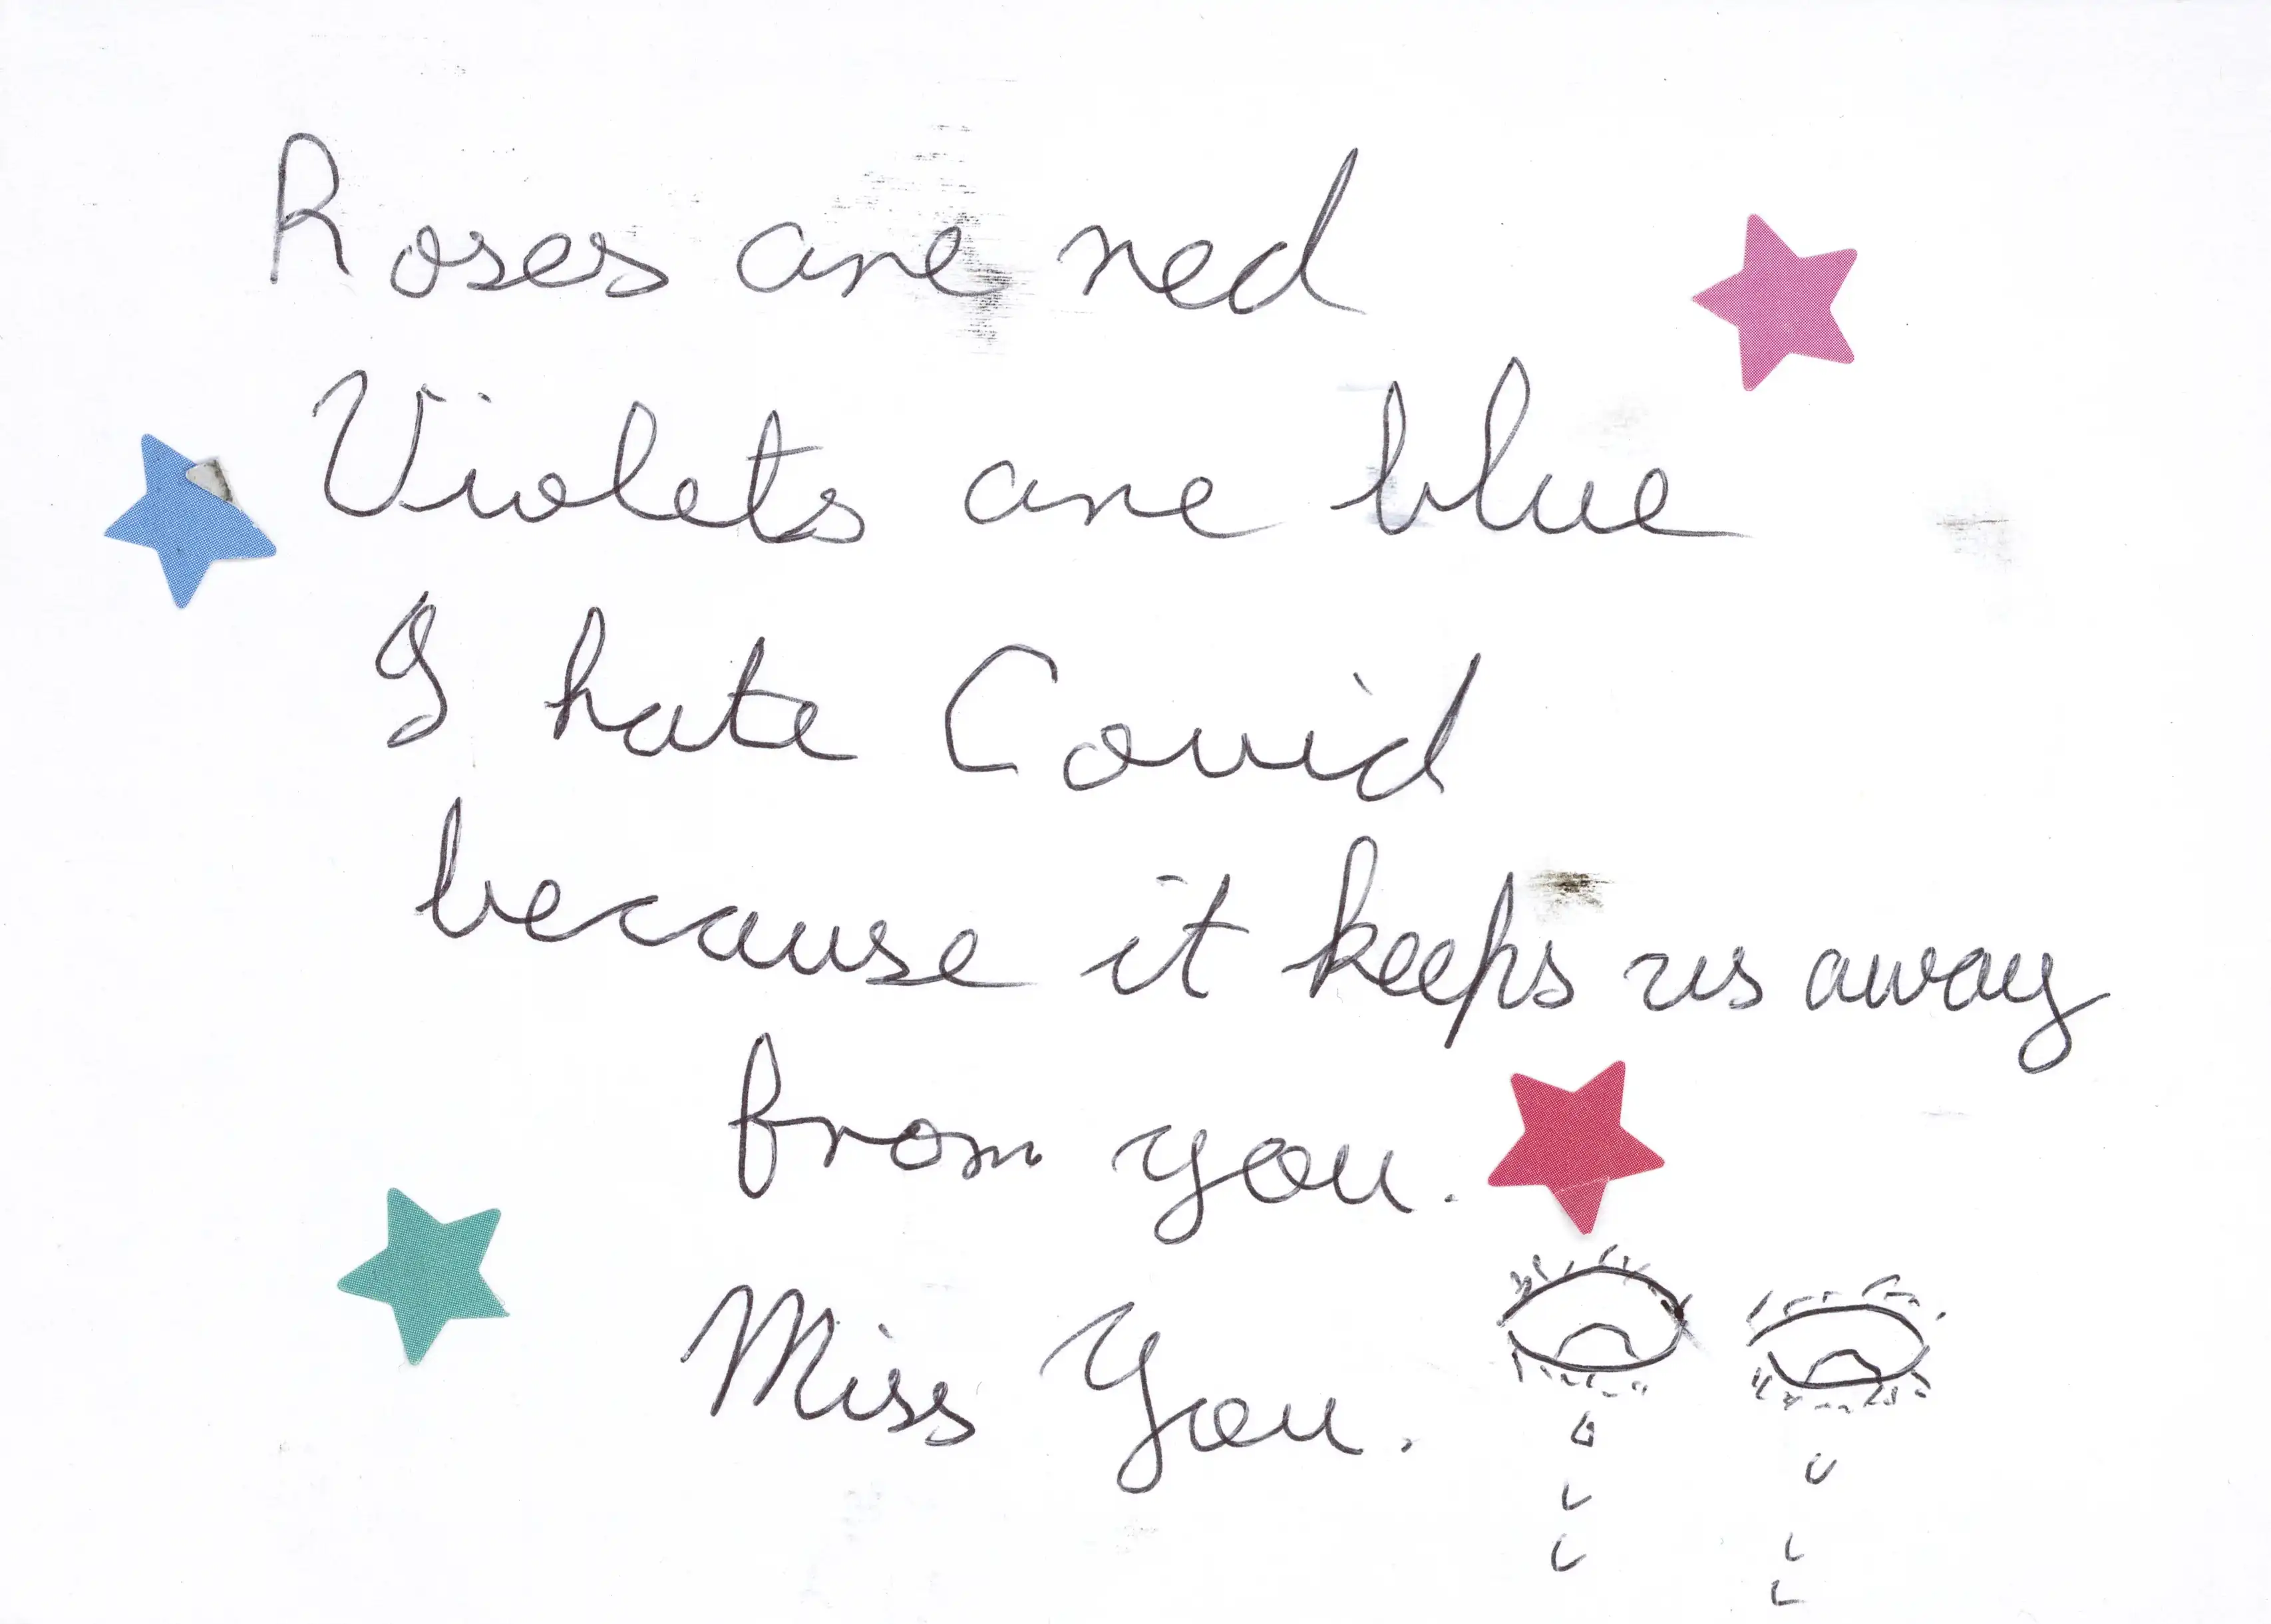 Roses are red
Violets are blue
I hate Covid
because it keeps us away
from you.
Miss You.